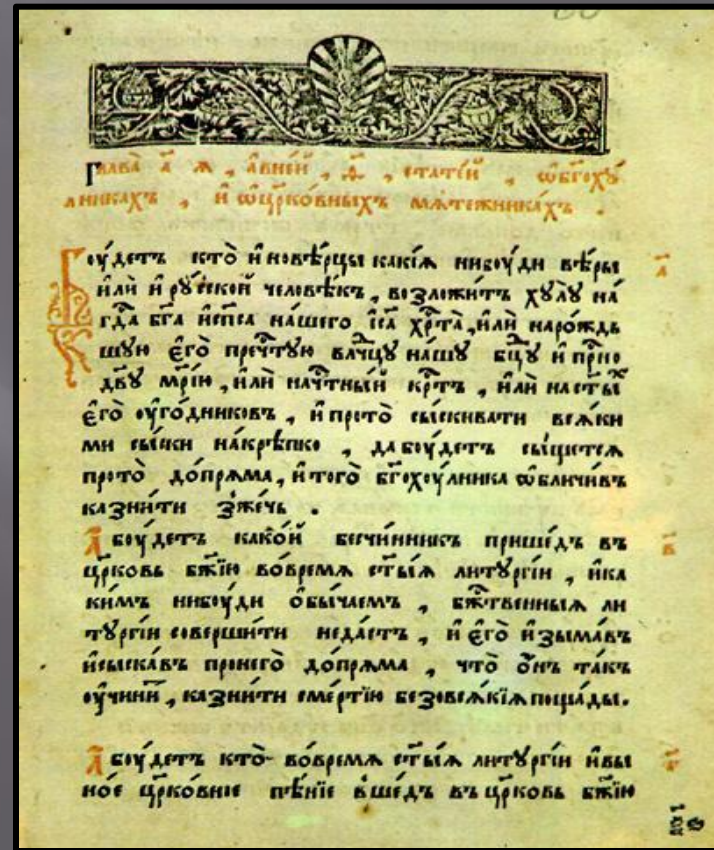 Глава̀ а҃ я , а́вней , ѳ҃ , стате́й , ѡ҆бг҃оху́
лникахъ , и҆ ѡ҆цр҃ко́вныхъ мѧте́жникахъ .
Бꙋ́детъ кто̀ и҆новѣ́рцы какі́ѧ нибꙋ́ди вѣ́ры
и҆лѝ и҆ рꙋ́сской человѣ́къ , возложи́тъ хꙋлꙋ̀ на́
гд҃а бг҃а и҆сп҃са на́шего і҆с҃а хр҃та̀ , и҆лѝ наро́ждь
шꙋю є҆го̀ пречⷭ҇тꙋю влⷣчцꙋ на́шꙋ бц҃ꙋ и҆ прⷭ҇но
дв҃ꙋ мр҃і́ю , и҆лѝ начⷭ҇тны́й крⷭ҇тъ , и҆лѝ на ст҃ы́ⷯ
є҆го̀ ᲂу҆го́дниковъ , и҆ прото̀ сы́скивати всѧ́ки
ми сы́ски накрѣ́пко , да бꙋ́детъ сы́щетсѧ
прото̀ до́прѧма , и҆ того̀ бг҃охꙋ́лника ѡ҆бличи́въ
казни́ти зже́чь .
А҆ бꙋ́детъ како́й безчи́нникъ прише́дъ въ
цр҃ковь бж҃ію во́времѧ ст҃ы́ѧ литꙋргі́и , и҆ ка
ки́мъ нибꙋ́ди о҆бы́чаемъ , бжⷭ҇твенныѧ ли
тꙋргі́и соверши́ти неда́стъ , и҆ є҆го̀ и҆зыма́въ
и҆ сыска́въ пронего̀ до́прѧма , что̀ ѻ҆́нъ та́къ
ᲂу҆чини́т , казни́ти сме́ртію безовсѧ́кіѧ поща́ды.
А҆ бꙋ́детъ кто̀ во́времѧ ст҃ы́ѧ литꙋргі́и и҆ вы
но́е цр҃ко́вное пѣ́ніе вше́дъ въ цр҃ковь бж҃ію
а҃
в҃
г҃